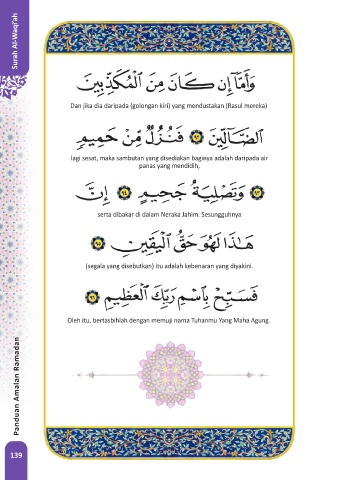 Surah Al-Waqi'ah
وَأَمَّآ إِن كَانَ مِنَ ٱلْمُكَذِّبِينَ
Dan jika dia daripada (golongan kiri) yang mendustakan (Rasul mereka)
ٱلضَّآلِّينَ ٩٢ فَنُزُلٌ مِّنْ حَمِيمٍ
lagi sesat, maka sambutan yang disediakan baginya adalah daripada air
panas yang mendidih,
٩٣ وَتَصْلِيَةُ جَحِيمٍ ٩٤ إِنَّ
serta dibakar di dalam Neraka Jahim. Sesungguhnya
هَٰذَا لَهُوَ حَقُّ ٱلْيَقِينِ ٩٥
(segala yang disebutkan) itu adalah kebenaran yang diyakini.
فَسَبِّحْ بِٱسْمِ رَبِّكَ ٱلْعَظِيمِ ٩٦
Oleh itu, bertasbihlah dengan memuji nama Tuhanmu Yang Maha Agung.
Panduan Amalan Ramadan
139